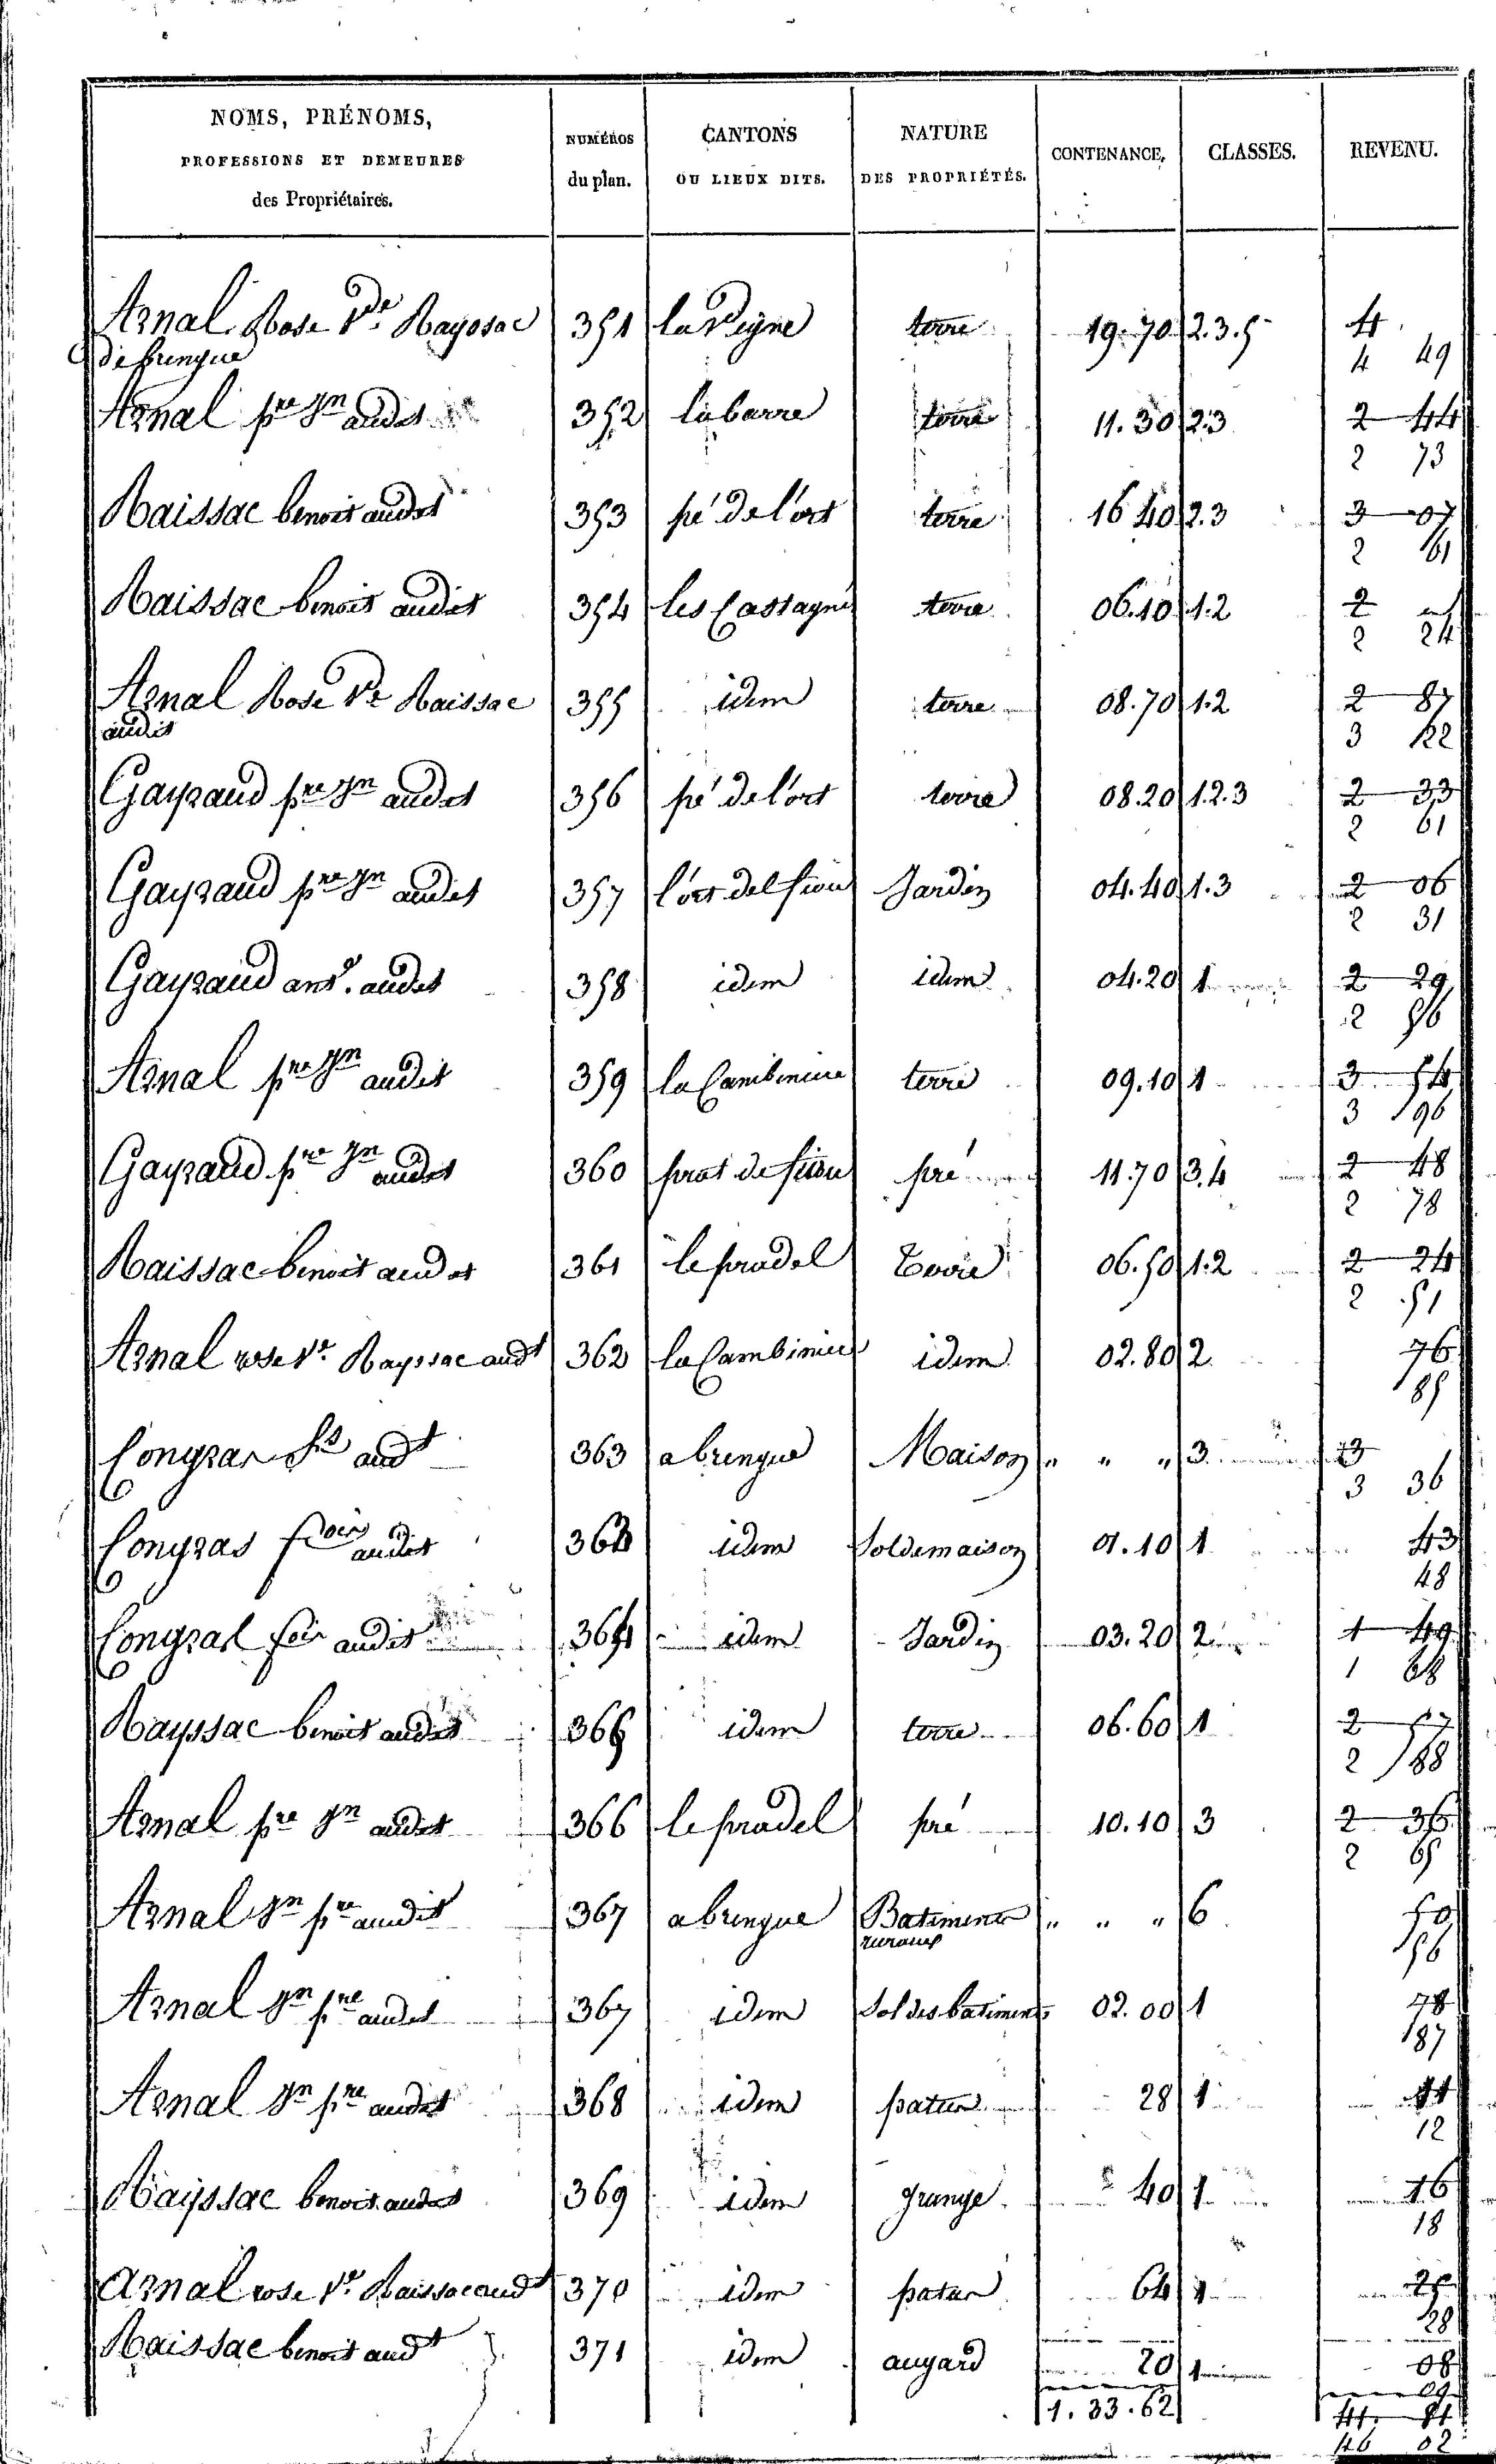 NOMS, PRÉNOMS, PROFESSIONS ET DEMEURES des Propriétaires. | NUMÉROS du plan. | CANTONS OU LIEUX DITS. | NATURE DES PROPRIÉTÉS. | CONTENANCE, | CLASSES. | REVENU.
Arnal Rose Ve Rayssac 351 la Vigne terre 19.70 2.3.5 4
de bringue 4 49
Arnal pre Jn audit 352 la barre terre 11.30 2.3 2 44
2 73
Raissac benoit audit 353 pé de l'ort terre 16 40 2.3 3 07
2 61
Raissac benoit audit 354 les Castagnés terre 06.10 1.2 2
2 24
Arnal Rose Ve Raissac 355 idem terre 08.70 1.2 2 87
audit 3 22
Gayraud pre Jn audit 356 pé de l'ort terre 08.20 1.2.3 2 33
2 61
Gayraud pre Jn audit 357 l'ort del Jardin 04.40 1.3 2 06
2 31
Gayraud ant. audit 358 idem idem 04.20 1 2 29
2 56
Arnal pre Jn audit 359 terre 09.10 1 3 54
3 96
Gayraud pre Jn audit 360 prat de pré 11.70 3.4 2 48
2 78
Raissac benoit audit 361 le pradel Terre 06.50 1.2 2 24
2 51
Arnal rose Ve Rayssac audt 362 idem 02.80 2 76
85
Congras audt 363 a bringue Maison " " " 3 3
3 36
Congras fcois audit 364 idem Sol de maison 01.10 1 43
48
Congras fois audit 364 idem Jardin 03.20 2 1 49
1 68
Rayssac benoit audit 365 idem terre 06.60 1 2 57
2 88
Arnal pre Jn audit 366 le pradel pré 10.10 3 2 36
2 65
Arnal Jn pre audit 367 a bringue Batiment " " " 6 50
ruraux 56
Arnal Jn pre audit 367 idem Sol des batiments 02.00 1 78
87
Arnal Jn pre audit 368 idem patus 28 1 11
12
Rayssac benoit audit 369 idem grange 40 1 16
18
Arnal rose Ve Raissac audt 370 idem patus 64 1 25
28
Raissac benoit audt 371 idem angard 20 1 08
09
1.33.62 41 81
46 82